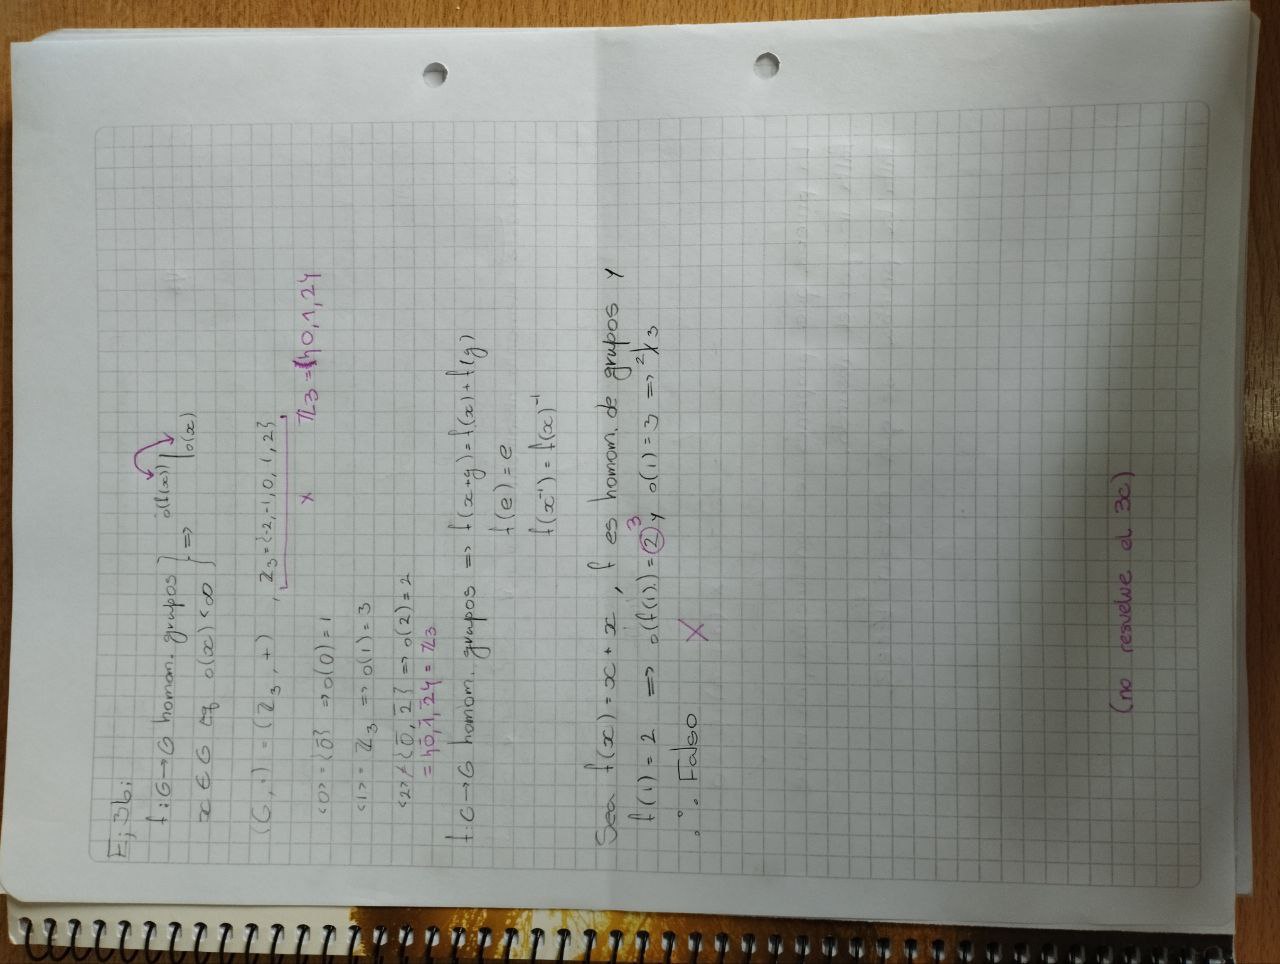 Ej 3b:
f: G→G homom. grupos } ⇒ o(f(x)) | o(x)
x ∈ G tq o(x) < ∞
(G, ·) = (ℤ₃, +) , ℤ₃ = {-2, -1, 0, 1, 2}
x ℤ₃ = {0, 1, 2}
<0> = {0̄} ⇒ o(0) = 1
<1> = ℤ₃ ⇒ o(1) = 3
<2> ≠ {0̄, 2̄} ⇒ o(2) = 2
= {0̄, 1̄, 2̄} = ℤ₃
f: G→G homom. grupos ⇒ f(x+y) = f(x) + f(y)
f(e) = e
f(x⁻¹) = f(x)⁻¹
Sea f(x) = x + x , f es homom. de grupos y
f(1) = 2 ⇒ o(f(1)) = 2 3 y o(1) = 3 ⇒ 2∤3
∴ Falso X
(no resuelve el 3c)